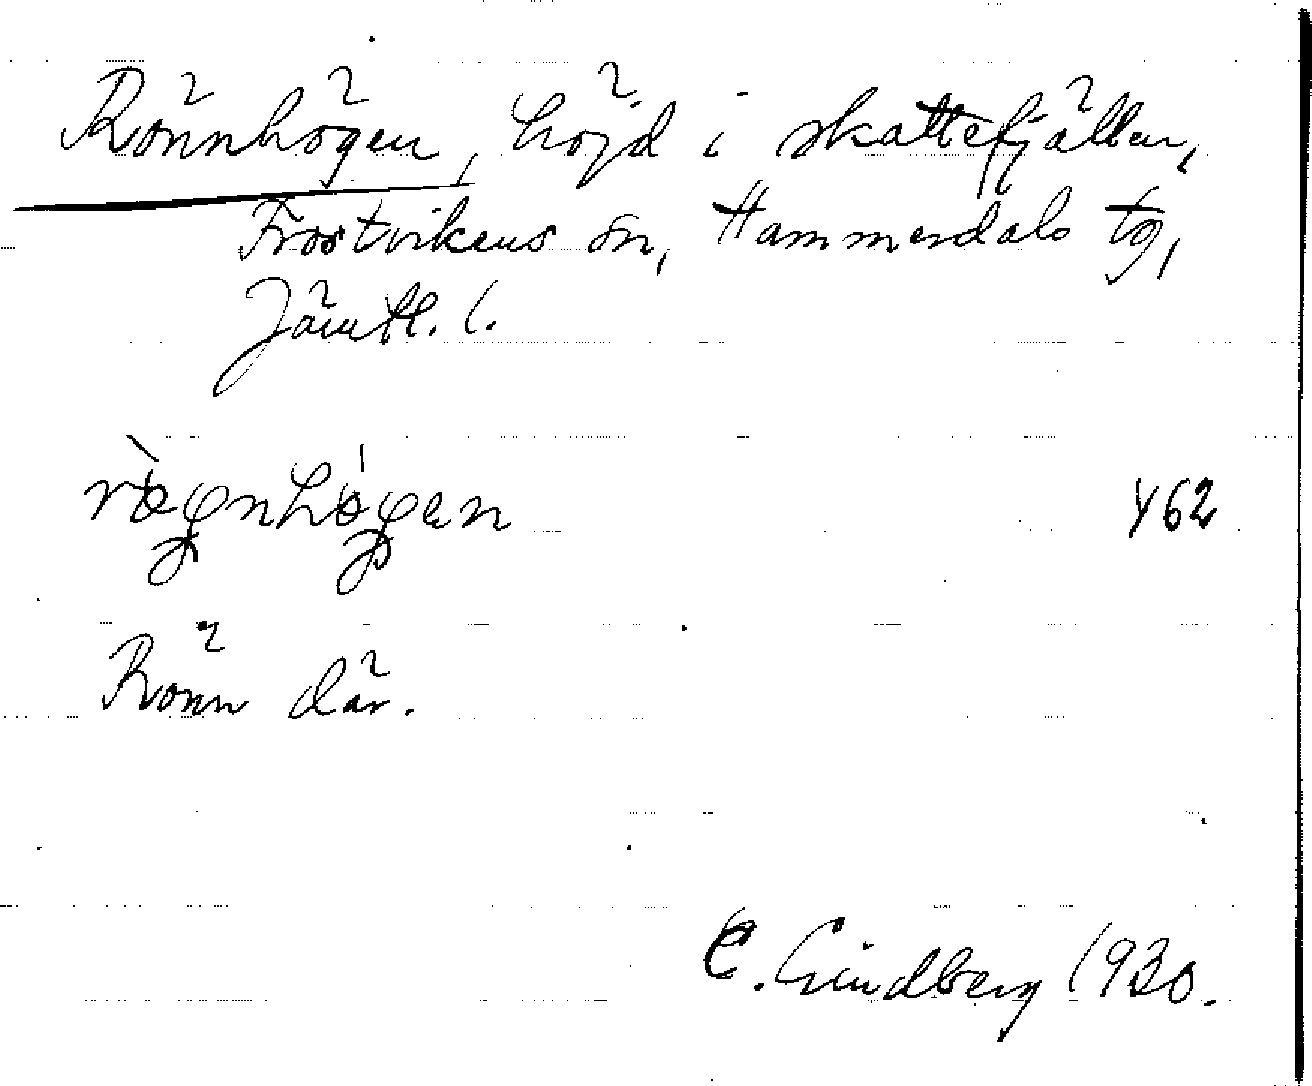 Rönnhögen, höjd i skattefjällen,
Frostvikens sn, Hammerdals tg,
Jämtl. l.
462
Rönn där.
C. Lindberg 1930.